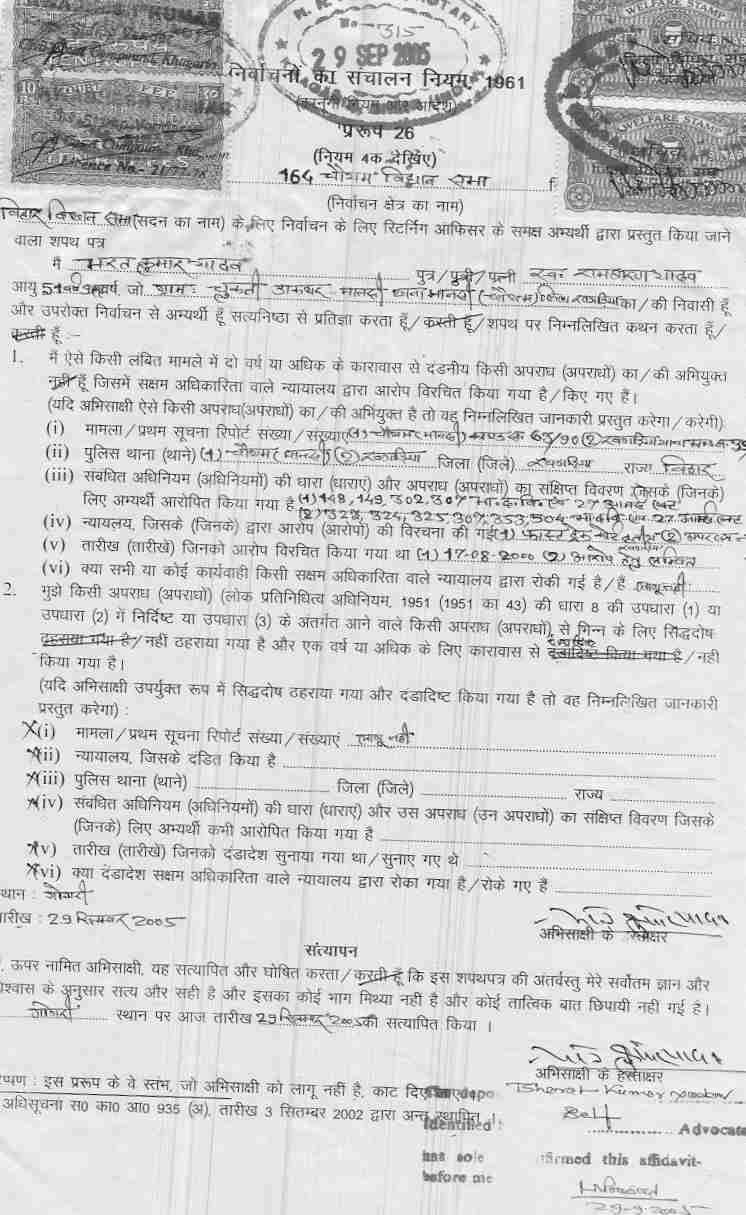 No 315
29 SEP 2005
WELFARE STAMP
WELFARE STAMP
निर्वाचनों का संचालन नियम, 1961
(कानूनी नियम और आदेश)
प्ररूप 26
(नियम 4क देखिए)
164 चौथम विधान सभा
(निर्वाचन क्षेत्र का नाम)
बिहार विधान सभा (सदन का नाम) के लिए निर्वाचन के लिए रिटर्निग आफिसर के समक्ष अभ्यर्थी द्वारा प्रस्तुत किया जाने
वाला शपथ पत्र
मैं भरत कुमार यादव पुत्र/पुत्री/पत्नी स्व॰ रामशरण यादव
आयु 51 वर्ष, जो ग्राम डाकघर मानसी थाना मानसी (चौथम) जिला खगड़िया का/की निवासी हूँ
और उपरोक्त निर्वाचन से अभ्यर्थी हूँ सत्यनिष्ठा से प्रतिज्ञा करता हूँ/करती हूँ/शपथ पर निम्नलिखित कथन करता हूँ/
करती हूँ :-
1. मैं ऐसे किसी लंबित मामले में दो वर्ष या अधिक के कारावास से दंडनीय किसी अपराध (अपराधों) का/की अभियुक्त
नहीं हूँ जिसमें सक्षम अधिकारिता वाले न्यायालय द्वारा आरोप विरचित किया गया है/किए गए हैं।
(यदि अभिसाक्षी ऐसे किसी अपराध(अपराधों) का/की अभियुक्त है तो यह निम्नलिखित जानकारी प्रस्तुत करेगा/करेगी)
(i) मामला/प्रथम सूचना रिपोर्ट संख्या/संख्याएं (1) चौथम (मानसी) 65/90 (2) खगड़िया थाना
(ii) पुलिस थाना (थाने) (1) चौथम (मानसी) (2) खगड़िया जिला (जिले) खगड़िया राज्य बिहार
(iii) संबधित अधिनियम (अधिनियमों) की धारा (धाराए) और अपराध (अपराधों) का संक्षिप्त विवरण जिसके (जिनके)
लिए अभ्यर्थी आरोपित किया गया है (1) 148, 149, 302, 307 भा.द.वि. एवं 27 आर्म्स एक्ट
(2) 323, 324, 325, 307, 353, 504 भा.द.वि. एवं 27 आर्म्स एक्ट
(iv) न्यायलय, जिसके (जिनके) द्वारा आरोप (आरोपों) की विरचना की गई (1) फास्ट ट्रैक कोर्ट (2)
(v) तारीख (तारीखे) जिनको आरोप विरचित किया गया था (1) 17-08-2000 (2) आरोप हेतु लम्बित
(vi) क्या सभी या कोई कार्यवाही किसी सक्षम अधिकारिता वाले न्यायालय द्वारा रोकी गई है/हैं लागू नहीं
2. मुझे किसी अपराध (अपराधों) (लोक प्रतिनिधित्व अधिनियम, 1951 (1951 का 43) की धारा 8 की उपधारा (1) या
उपधारा (2) में निर्दिष्ट या उपधारा (3) के अंतर्गत आने वाले किसी अपराध (अपराधों) से भिन्न के लिए सिद्धदोष
ठहराया गया है/नहीं ठहराया गया है और एक वर्ष या अधिक के लिए कारावास से दंडादिष्ट किया गया है/नहीं
किया गया है।
(यदि अभिसाक्षी उपर्युक्त रूप में सिद्धदोष ठहराया गया और दंडादिष्ट किया गया है तो वह निम्नलिखित जानकारी
प्रस्तुत करेगा) :
(i) मामला/प्रथम सूचना रिपोर्ट संख्या/संख्याएं लागू नहीं
(ii) न्यायालय, जिसके दंडित किया है
(iii) पुलिस थाना (थाने) जिला (जिले) राज्य
(iv) संबधित अधिनियम (अधिनियमों) की धारा (धाराए) और उस अपराध (उन अपराधों) का संक्षिप्त विवरण जिसके
(जिनके) लिए अभ्यर्थी कभी आरोपित किया गया है
(v) तारीख (तारीखें) जिनको दंडादेश सुनाया गया था/सुनाए गए थे
(vi) क्या दंडादेश सक्षम अधिकारिता वाले न्यायालय द्वारा रोका गया है/रोके गए हैं
थान : गोगरी
ारीख : 29 सितम्बर 2005
अभिसाक्षी के हस्ताक्षर
सत्यापन
ऊपर नामित अभिसाक्षी, यह सत्यापित और घोषित करता/करती हूँ कि इस शपथपत्र की अंतर्वस्तु मेरे सर्वोतम ज्ञान और
श्वास के अनुसार सत्य और सही है और इसका कोई भाग मिथ्या नही है और कोई तात्विक बात छिपायी नही गई है।
गोगरी स्थान पर आज तारीख 29 सितम्बर 2005 को सत्यापित किया ।
अभिसाक्षी के हस्ताक्षर
प्पण : इस प्ररूप के वे स्तंभ, जो अभिसाक्षी को लागू नही है, काट दिए
अधिसूचना स0 का0 आ0 935 (अ), तारीख 3 सितम्बर 2002 द्वारा अन्तः स्थापित ।
Bharat Kumar
Identified : Self
Advocate
has sole firmed this affidavit-
before me
29-9-2005